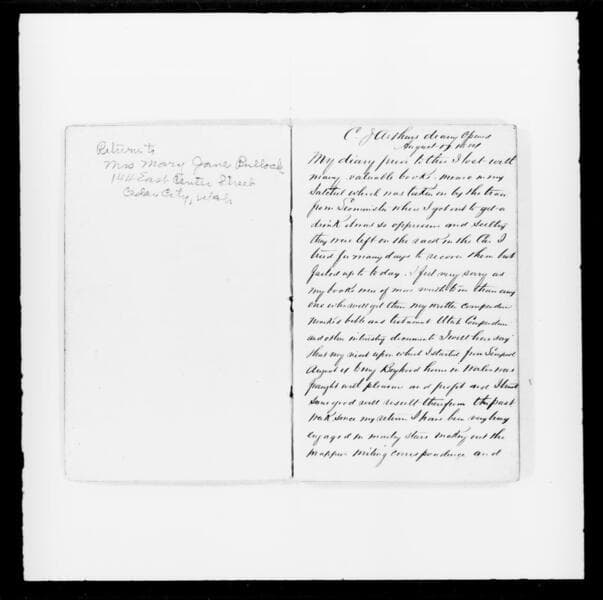 Return to
Mrs Mary Jane Bullock
144 East Center Street
Cedar City, Utah
C J Arthurs diary Opens
August 19
My diary prior to this I lost with
many valuable books. more in my
Satchel which was taken on by the train
from Leominster where I got out to get a
drink it was so oppressive and sultry
they were left on the rack in the Car I
tried for many days to recover them but
failed up to to day. I feel very sorry as
my books were of more worth to me than any
one who will get them my written compendium
marked bible and testament Utah Compendium
and other interesting documents I will here say
that my visit upon which I started from Liverpool
August 4 to my Boyhood home in Wales was
fraught with pleasure and profit and I trust
some good will result therefrom the past
week since my return I have been very busy
engaged in mostly Stars making out the
wrappers writing correspondence and